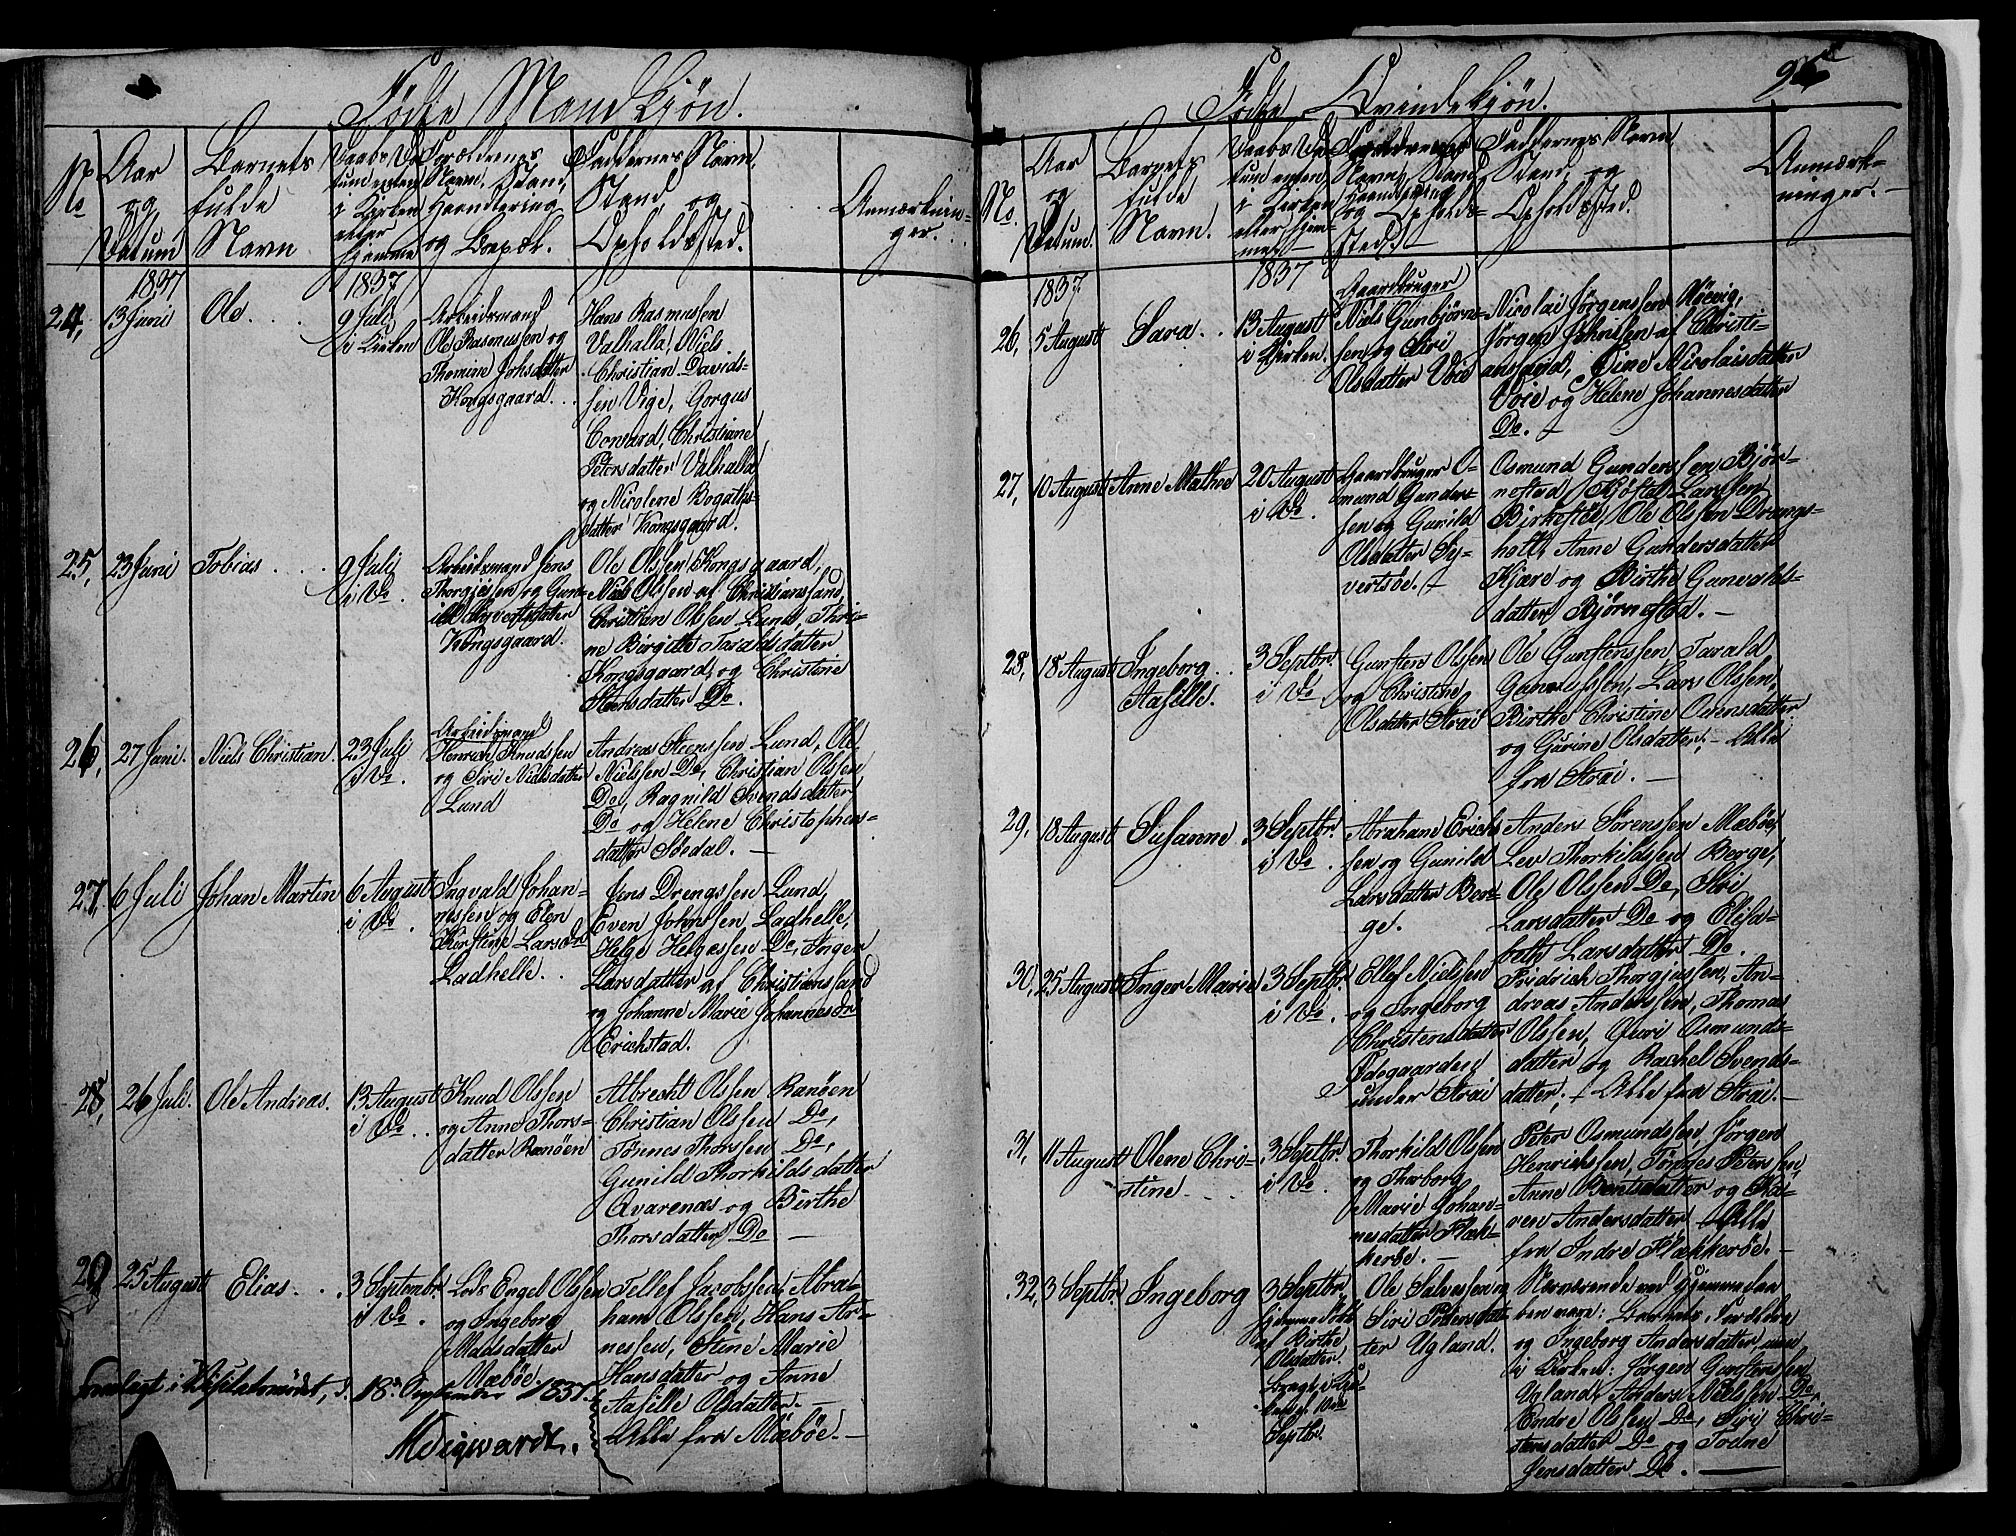 Fødte Mandkjøn.
No
Aar
og
Datum
Barnets
fulde
Navn
Daabs Da-
tum enten
i Kirken
eller
hjemme
Forældrenes
Navn, Stand,
Haandtering
og Bopæl.
Faddernes Navn,
Stand, og
Opholdssted.
Anmærknin-
ger.
1837
1837
24,
13 Juni
Ole
9 Juli
i Kirken
Arbeidsmand
Ole Rasmussen og
Thomine Johsdatter
Kongsgaard.
Hans Rasmussen
Valhalla, Niels
Christian Davids-
sen Vige, Gorgus
Conrard, Christiane
Petersdatter Valhalla
og Nicolene
datter Kongsgaard.
25,
23 Juni
Tobias
9 Juli
i Do.
Arbeidsmand Jens
Thorgjussen og Gun-
ild
Kongsgaard.
Ole Olssen Kongsgaard,
Niels Olssen af Christianssand,
Christian Olssen Lund, Thri-
ne Birgitte Taraldsdatter
Kongsgaard, og Christine
Steensdatter Do.
26,
27 Juni.
Niels Christian.
23 Juli
i Do.
Arbeidsmand
Henrich Knudssen
og Siri Nielsdatter
Lund
Andreas Steenssen Lund, Ole
Nielssen Do, Christian Olssen
Do, Ragnild Svendsdatter
Do og Helene Christophers-
datter Søedal.
27,
6 Juli
Johan Martin
6 August
i Do.
Ingvald Johan-
nessen og Elen
Kirstine Larsdtr
Ladhelle.
Jens Drengssen Lund,
Even Johnsen Ladhelle,
Helge Helgessen Do, Inger
Larsdatter af Christianssand
og Johanne Marie Johannesdtr
Erichstad.
28,
26 Juli.
Ole Andreas.
13 August
i Do.
Knud Olssen
og Anne Thors-
datter Ranøen
Albrecht Olssen Ranøen
Christian Olssen Do,
Tønnes Thorssen Do,
Gunild Thorkildsdatter
Qvarenæs og Birthe
Thorsdatter Do
29
25 August
Elias.
3 Septembr.
i Do.
Lods Engel Olssen
og Ingeborg
Madsdatter
Mæbøe.
Tellef Jacobssen, Abra-
ham Olssen, Hans Ar-
nessen, Stine Marie
Hansdatter og Anne
Aasille Olsdatter.
Alle fra Mæbøe.
Fremlagt i Visitatsmødet, d. 18de September 1837.
Fødte Qvindekjøn.
96
No.
Aar
og
Datum.
Barnets
fulde
Navn.
Daabs Da-
tum enten
i Kirken
eller hjem-
me
Forældrenes
Navn, Stand
Haandtering
og Opholds-
sted.
Faddernes Navn,
Stand, og
Opholdssted.
Anmærk-
ninger.
1837
1837
26,
5 August
Sara
13 August
i Kirken.
Gaardbruger
Niels Gunbjørns-
sen og Siri
Olsdatter Voie
Nicolai Jørgenssen Røevig,
Jørgen Johnssen af Christi-
anssand, Stine Nicolaisdatter
Voie og Helene Johannesdatter
Do.
27,
10 August
Anne Mathee
20 August
i Do.
Gaardbruger O-
mund Gunders-
sen og Gunild
Olsdatter Sy-
vertsøe.
Osmund Gunderssen Bjør-
nestad, Kjøstel Larssen
Birkestøe, Ole Olssen Drengs-
holt, Anne Gundersdatter
Kjære og Birthe Gunvalds-
datter Bjørnestad.
28,
18 August
Ingeborg
Aasille.
3 Septbr.
i Do.
Gunsten Olssen
og Christine
Olsdatter Strai
Ole Gunstenssen, Tarald
Lars Olssen,
Birthe Christine Ovensdatter
og Gurine Olsdatter; Alle
fra Strai.
29,
18 August
Susanne
3 Septbr.
i Do.
Abraham Erich-
sen og Gunild
Larsdatter Ber-
ge.
Anders Sørenssen Mæbøe,
Lev Thorkildssen Berge,
Ole Olssen Do, Siri
Larsdatter Do og Elisa-
beth Larsdatter Do.
30,
25 August
Inger Marie
3 Septbr.
i Do.
Ellef Nielssen
og Ingeborg
Christensdatter
Ødegaarden
under Strai
Fridrich Thorgjussen, An-
dreas Anderssen, Thomas
Olssen, Guri Osmunds-
datter og Rachel Svends-
datter; Alle fra Strai.
31,
11 August
Olene Chri-
stine
3 Septbr.
i Do.
Thorkild Olssen
og Thorborg
Marie Johan-
nesdatter Flæk-
kerøe.
Peter Osmundssen, Jørgen
Henrichssen, Tønnes Peterssen,
Anne Berntsdatter og Ka-
ren Andersdatter Alle
fra Indre Flækkerøe.
32,
3 Septbr.
Ingeborg
3 Septbr.
hjemmedøbt
af Birthe
Olsdatter.
Bragt i
Septbr.
Ole Salvessen og
Siri Pedersdat-
ter Ugland.
Nærværende ved Hjemmedaa-
ben vare: Barnets Forældre
og Ingeborg Andersdatter, men
i Kirken: Jørgen Gunstenssen
Ugland, Anders Nielssen Do,
Endre Olssen Do, Siri Chri-
stensdatter Do og Torine
Jensdatter Do.